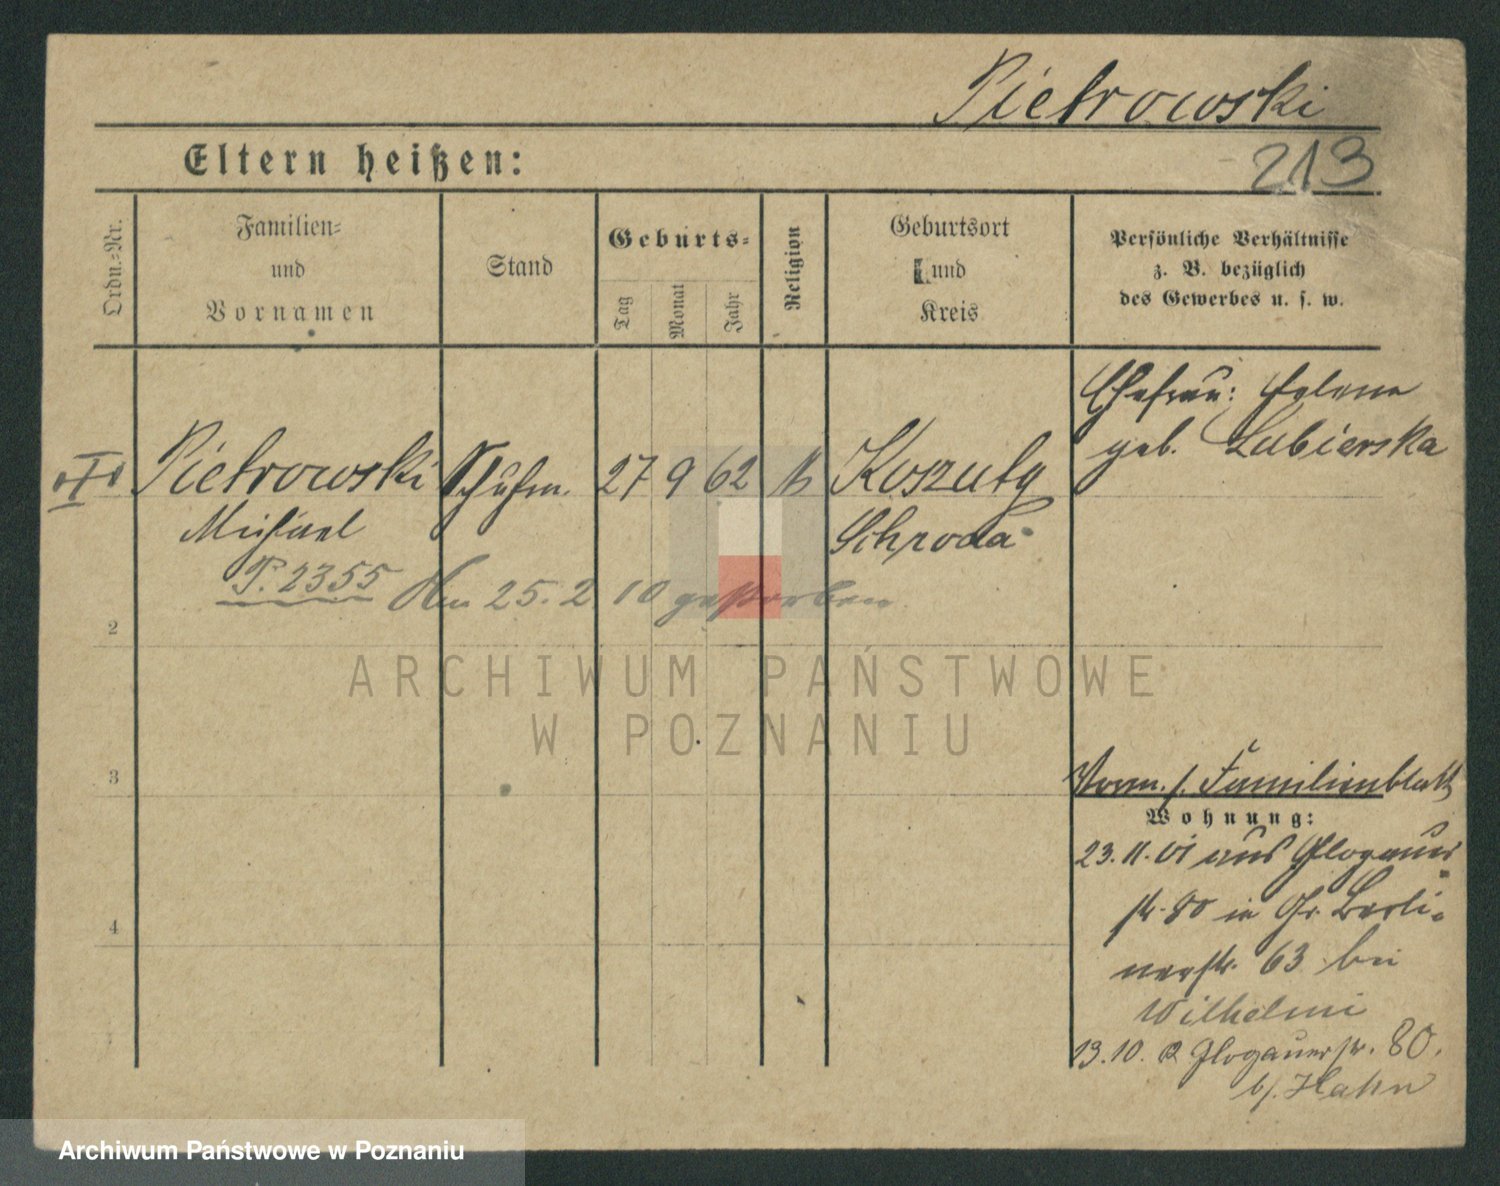 Pietrowski
213
Eltern heißen:
Ordn.-Nr.
Familien-
und
Vornamen
Stand
Geburts-
Tag
Monat
Jahr
Religion
Geburtsort
und
Kreis
Persönliche Verhältnisse
z. B. bezüglich
des Gewerbes u. s. w.
Ehefrau: Helena
geb. Lubierska
Pietrowski
27 9 62
Koszuty
Michael
Schroda
P. 2355
25. 2 10 gestorben
2
ARCHIWUM PAŃSTWOWE
W POZNANIU
3
Familienblatt
Wohnung:
23. 11. 01 aus Glogauer
str. 80 in Gr. Berli-
4
nerstr. 63 bei
Wilhelmi
13. 10. 2 Glogauerstr. 80.
b/. Hahn
Archiwum Państwowe w Poznaniu